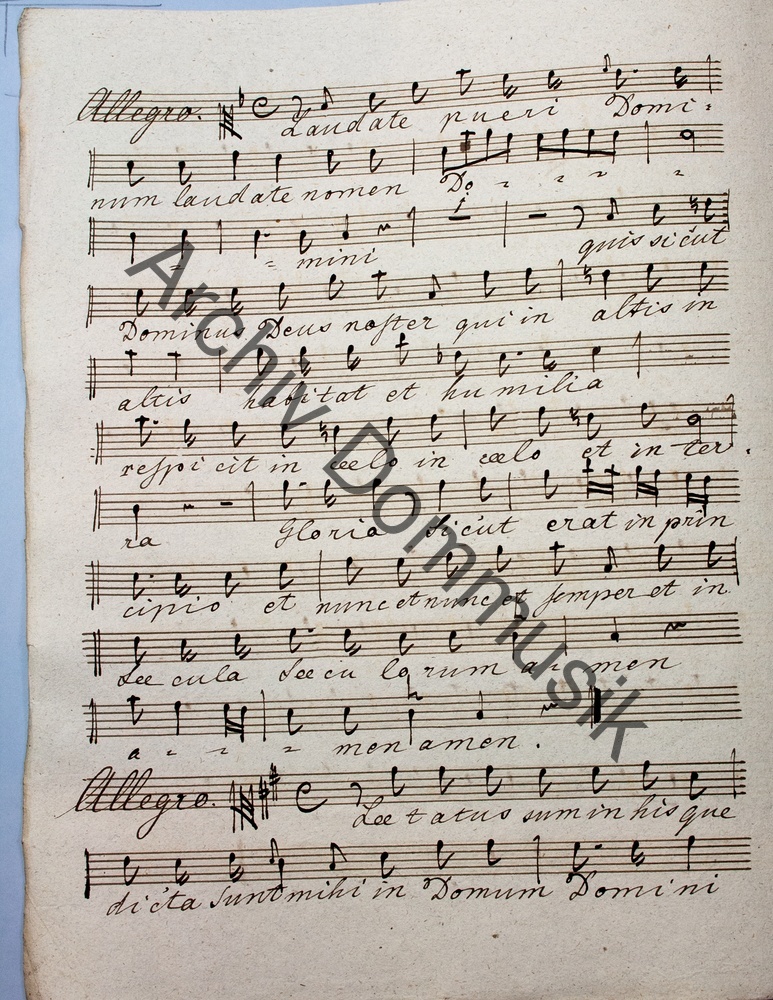 Allegro. Laudate pueri Domi-
num laudate nomen Do - - - -
- - mini quis sicut
Dominus Deus noster qui in altis in
altis habitat et humilia
respi cit in cœlo in cœlo et in ter.
ra Gloria Sicut erat in prin
cipio et nunc et nunc et semper et in
Sæ cula Sæcu lo rum a- men
a - - - men amen.
Allegro. Læ tatus sum in his que
dicta Sunt mihi in Domum Domini
Archiv Dommusik